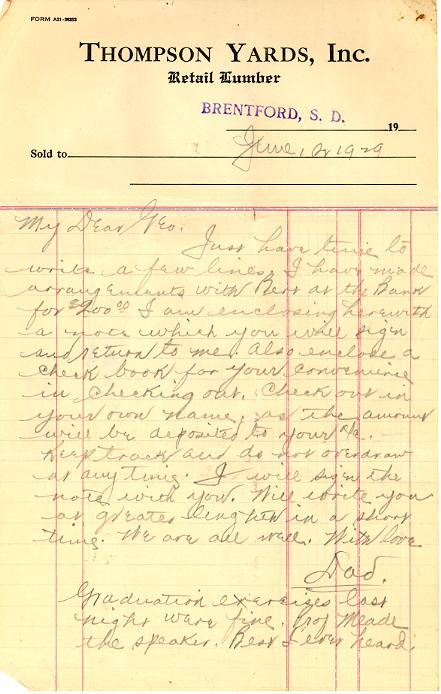 FORM A21-36253
THOMPSON YARDS, INC.
Retail Lumber
BRENTFORD, S. D.
19
June, 12 1929
Sold to
My Dear Geo.
Just have time to
write a few lines. I have made
arrangements with Bert at the Bank
for $200.00 I am enclosing herewith
a note which you will sign
and return to me. Also enclose a
check book for your convenience
in checking out. Check out in
your own name, as the amount
will be deposited to your a/c.
Keep track and do not overdraw
at any time. I will sign the
note with you. Will write you
at greater length in a short
time. We are all well. With love
Dad.
Graduation exercizes last
night were fine. Prof Meade
the speaker. Best I ever heard.